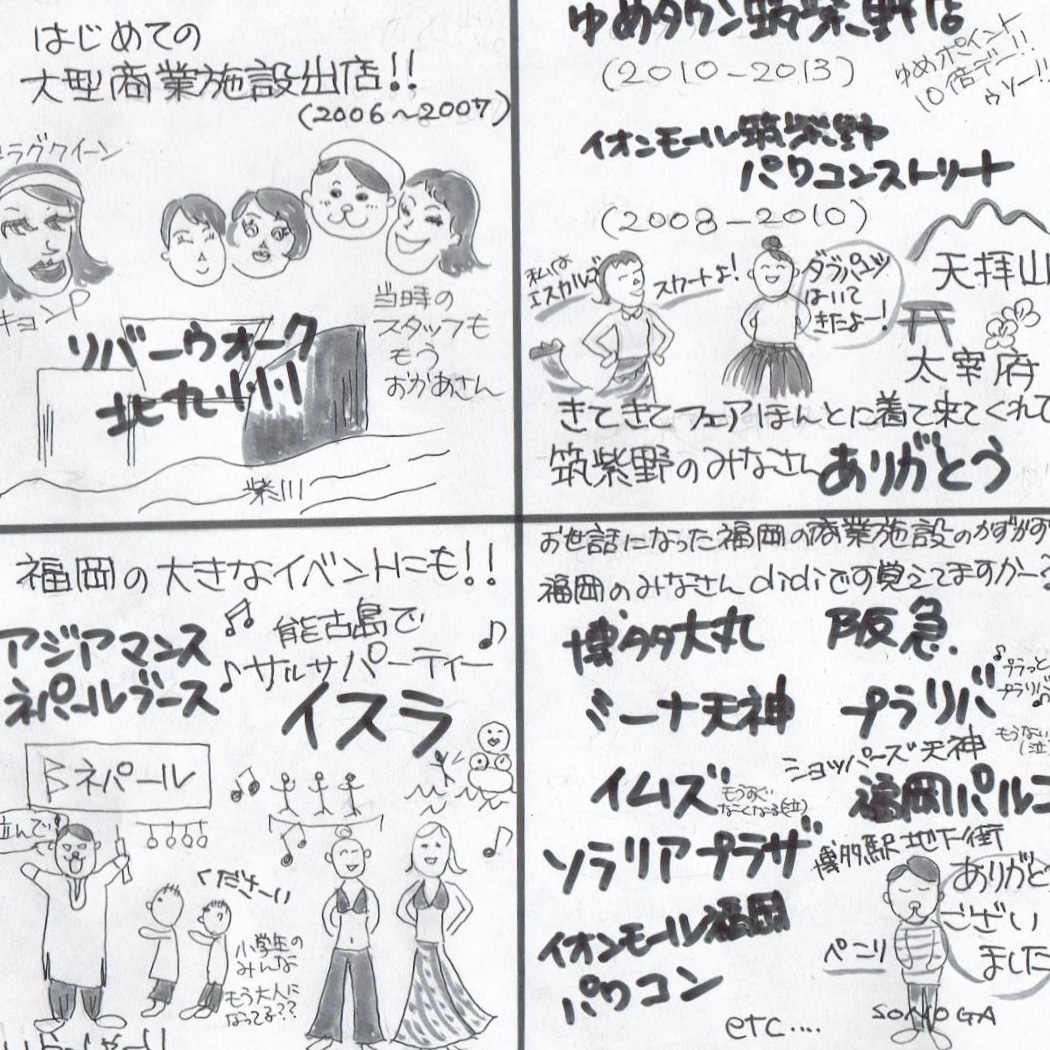 はじめての
大型商業施設出店!!
(2006〜2007)
ラグクイーン
キョンP
リバーウォーク
北九州
当時の
スタッフも
もう
おかあさん
紫川
ゆめタウン筑紫野店
(2010-2013)
ゆめポイント
10倍デー!!
ウソー!!
イオンモール筑紫野
パワコンストリート
(2008-2010)
私は
エスカルゴ
スカートよ!
ダブパンツ
はいて
きたよー!
天拝山
太宰府
きてきてフェアほんとに着て来てくれて
筑紫野のみなさんありがとう
福岡の大きなイベントにも!!
アジアマンス
ネパールブース
能古島で
サルサパーティー
イスラ
ネパール
並んで
くださーい
小学生の
みんな
もう大人に
なってる??
いらっしゃー!!
お世話になった福岡の商業施設のかずかず
福岡のみなさんdidiです覚えてますかー?
博多大丸
阪急
ミーナ天神
プラリバ
プラっと
プラリバ
もうない
(泣)
ショッパーズ天神
イムズ
もうすぐ
なくなる(泣)
福岡パルコ
ソラリアプラザ
博多駅地下街
イオンモール福岡
パワコン
ありがと
ござい
ました
ペこり
SONOGA
etc....